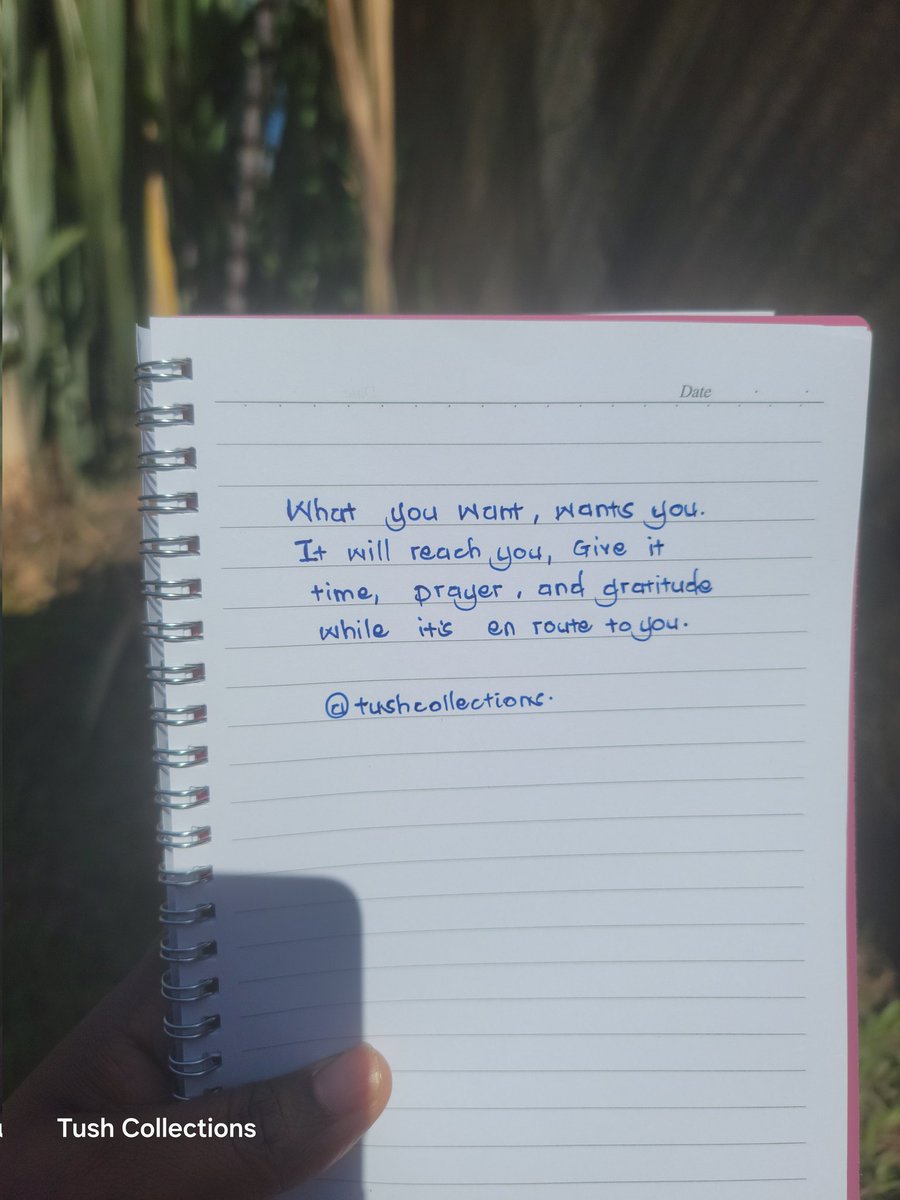 Date
What you want, wants you.
It will reach you, Give it
time, prayer, and gratitude
while it's en route to you.
@tushcollections.
Tush Collections